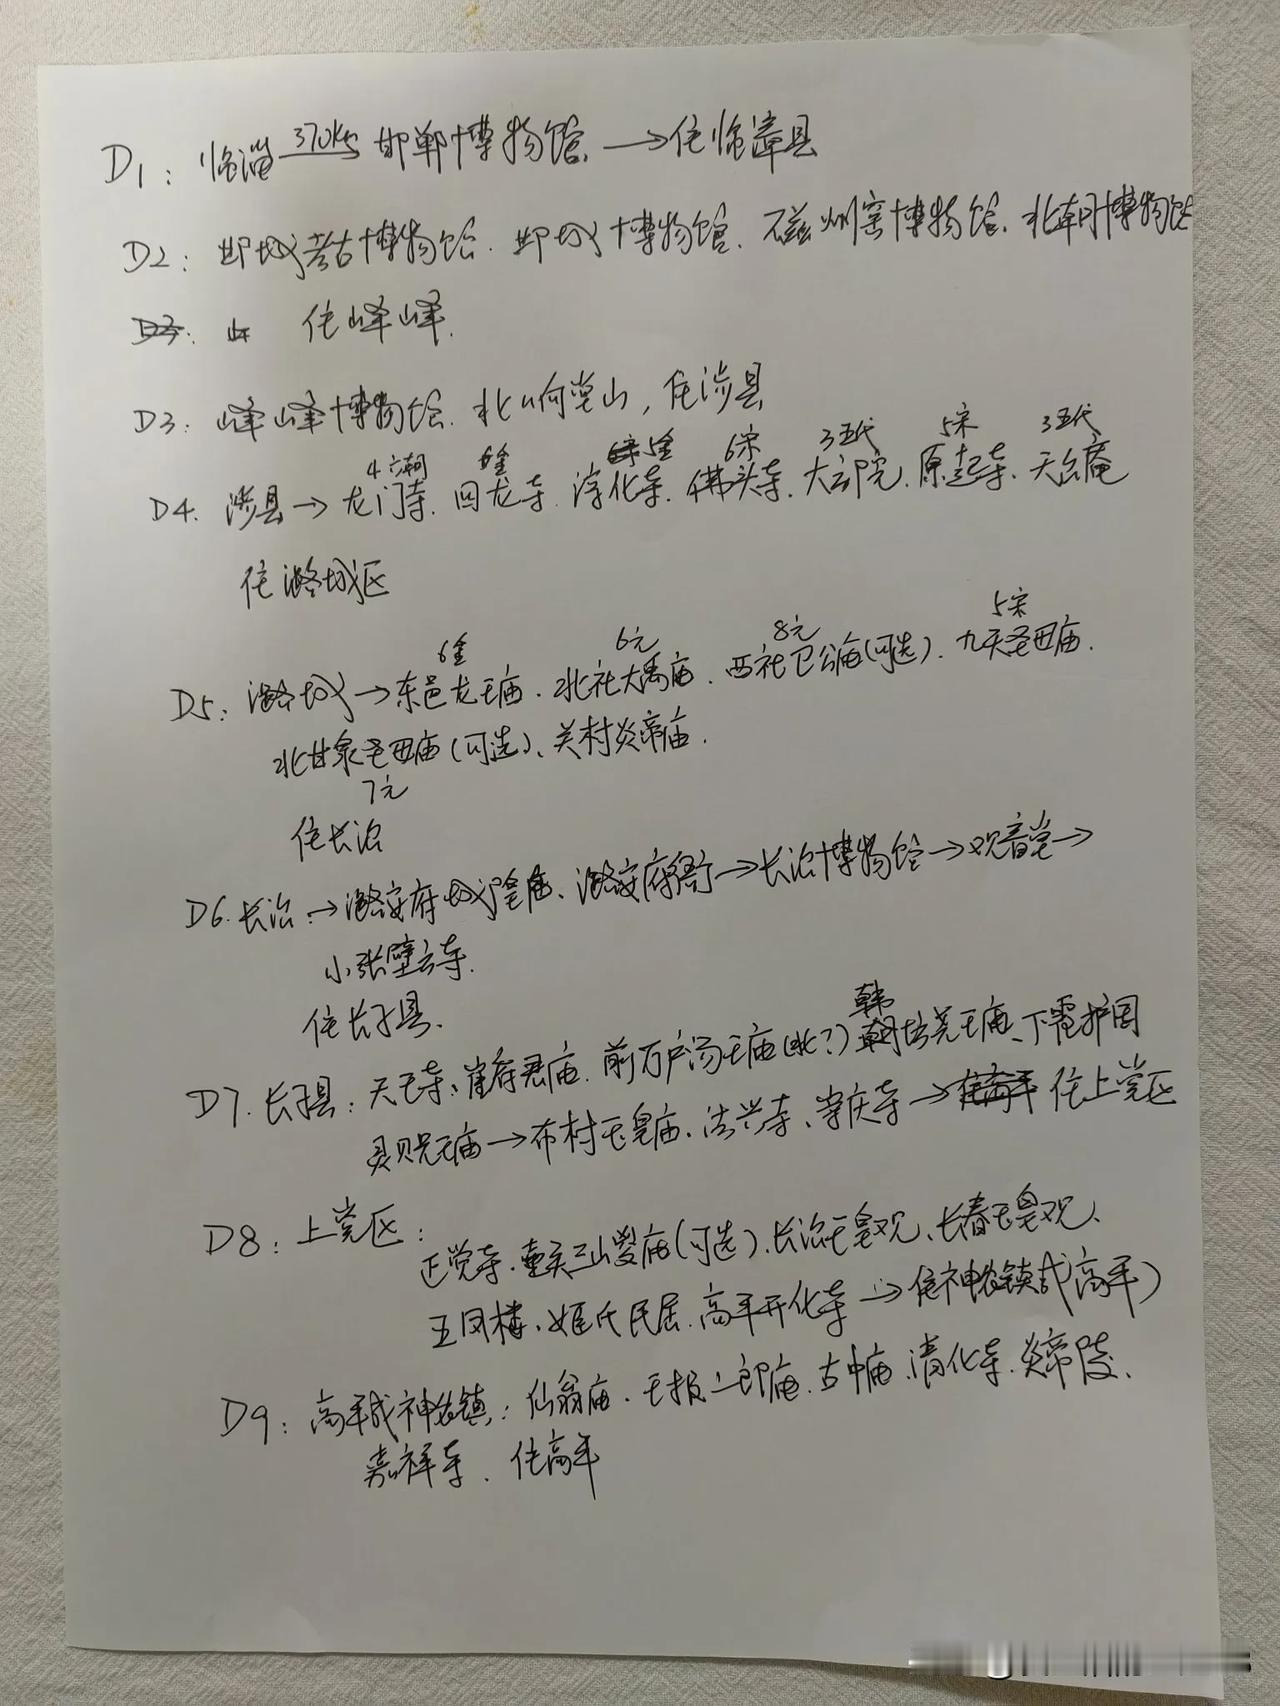 D1: 临淄 370km→ 邯郸博物馆 → 住临漳县
D2: 邺城考古博物馆、邺城博物馆、磁州窑博物馆、北朝博物馆
D3: 住峰峰.
D3: 峰峰博物馆、北响堂山，住涉县
4六朝 金 5金 6宋 3五代 5宋 3五代
D4. 涉县→龙门寺、回龙寺、淳化寺、佛头寺、大云院、原起寺、天台庵
住潞城区
6金 6元 8元 5宋
D5: 潞城→东邑龙王庙、北社大禹庙、西社卫公庙(可选)、九天圣母庙.
北甘泉圣母庙(可选)、关村炎帝庙.
7元
住长治
D6. 长治→潞安府城隍庙、潞安府衙→长治博物馆→观音堂→
小张碧云寺.
住长子县.
韩
D7. 长子县: 天王寺、崔府君庙、前万户汤王庙(北?)坊尧王庙、下霍护国
灵贶王庙→布村玉皇庙、法兴寺、崇庆寺→住高平 住上党区
D8: 上党区:
正觉寺、壶关三嵕庙(可选)、长治玉皇观、长春玉皇观、
五凤楼、姬氏民居、高平开化寺→住神农镇或高平)
D9: 高平或神农镇: 仙翁庙、王报二郎庙、古中庙、清化寺、炎帝陵、
嘉祥寺. 住高平